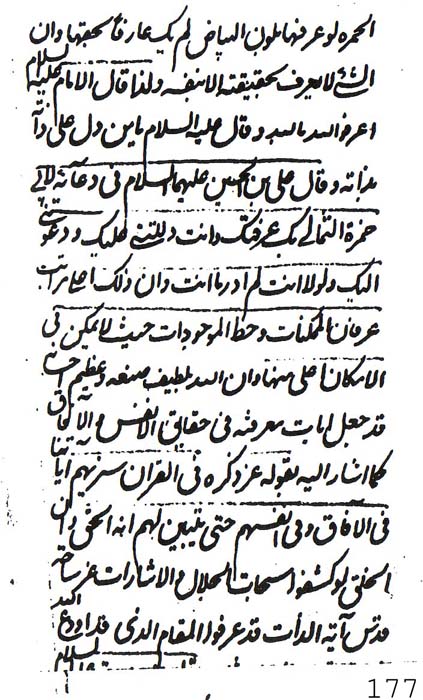 الحمرة لو عرفتها بلون البياض لم يك عارفا بحقها وان
الشیء لا يعرف بحقيقته الا بنفسه ولذا قال الامام عليه السلام
اعرفوا الله بالله وقال عليه السلام يا من دل على ذاته
بذاته وقال علي بن الحسين عليهما السلام في دعائه لابي
حمزة الثمالي بك عرفتك وانت دللتني عليك ودعوتني
اليك ولولا انت لم ادر ما انت وان ذلك اعلى مراتب
عرفان الممكنات وحظ الموجودات حيث لا يمكن في
الامكان اعلى منها وان الله بلطيف صنعه وعظيم
قد جعل ايات معرفته في حقايق الانفس والآفاق
كما اشار اليه بقوله عز ذكره في القران سنريهم آياتنا
في الآفاق وفي انفسهم حتى يتبين لهم انه الحق وان
الخلق لو كشفوا سبحات الجلال والاشارات عن ساحة
قدس آية الذات قد عرفوا المقام الذي قد اودع الله
177